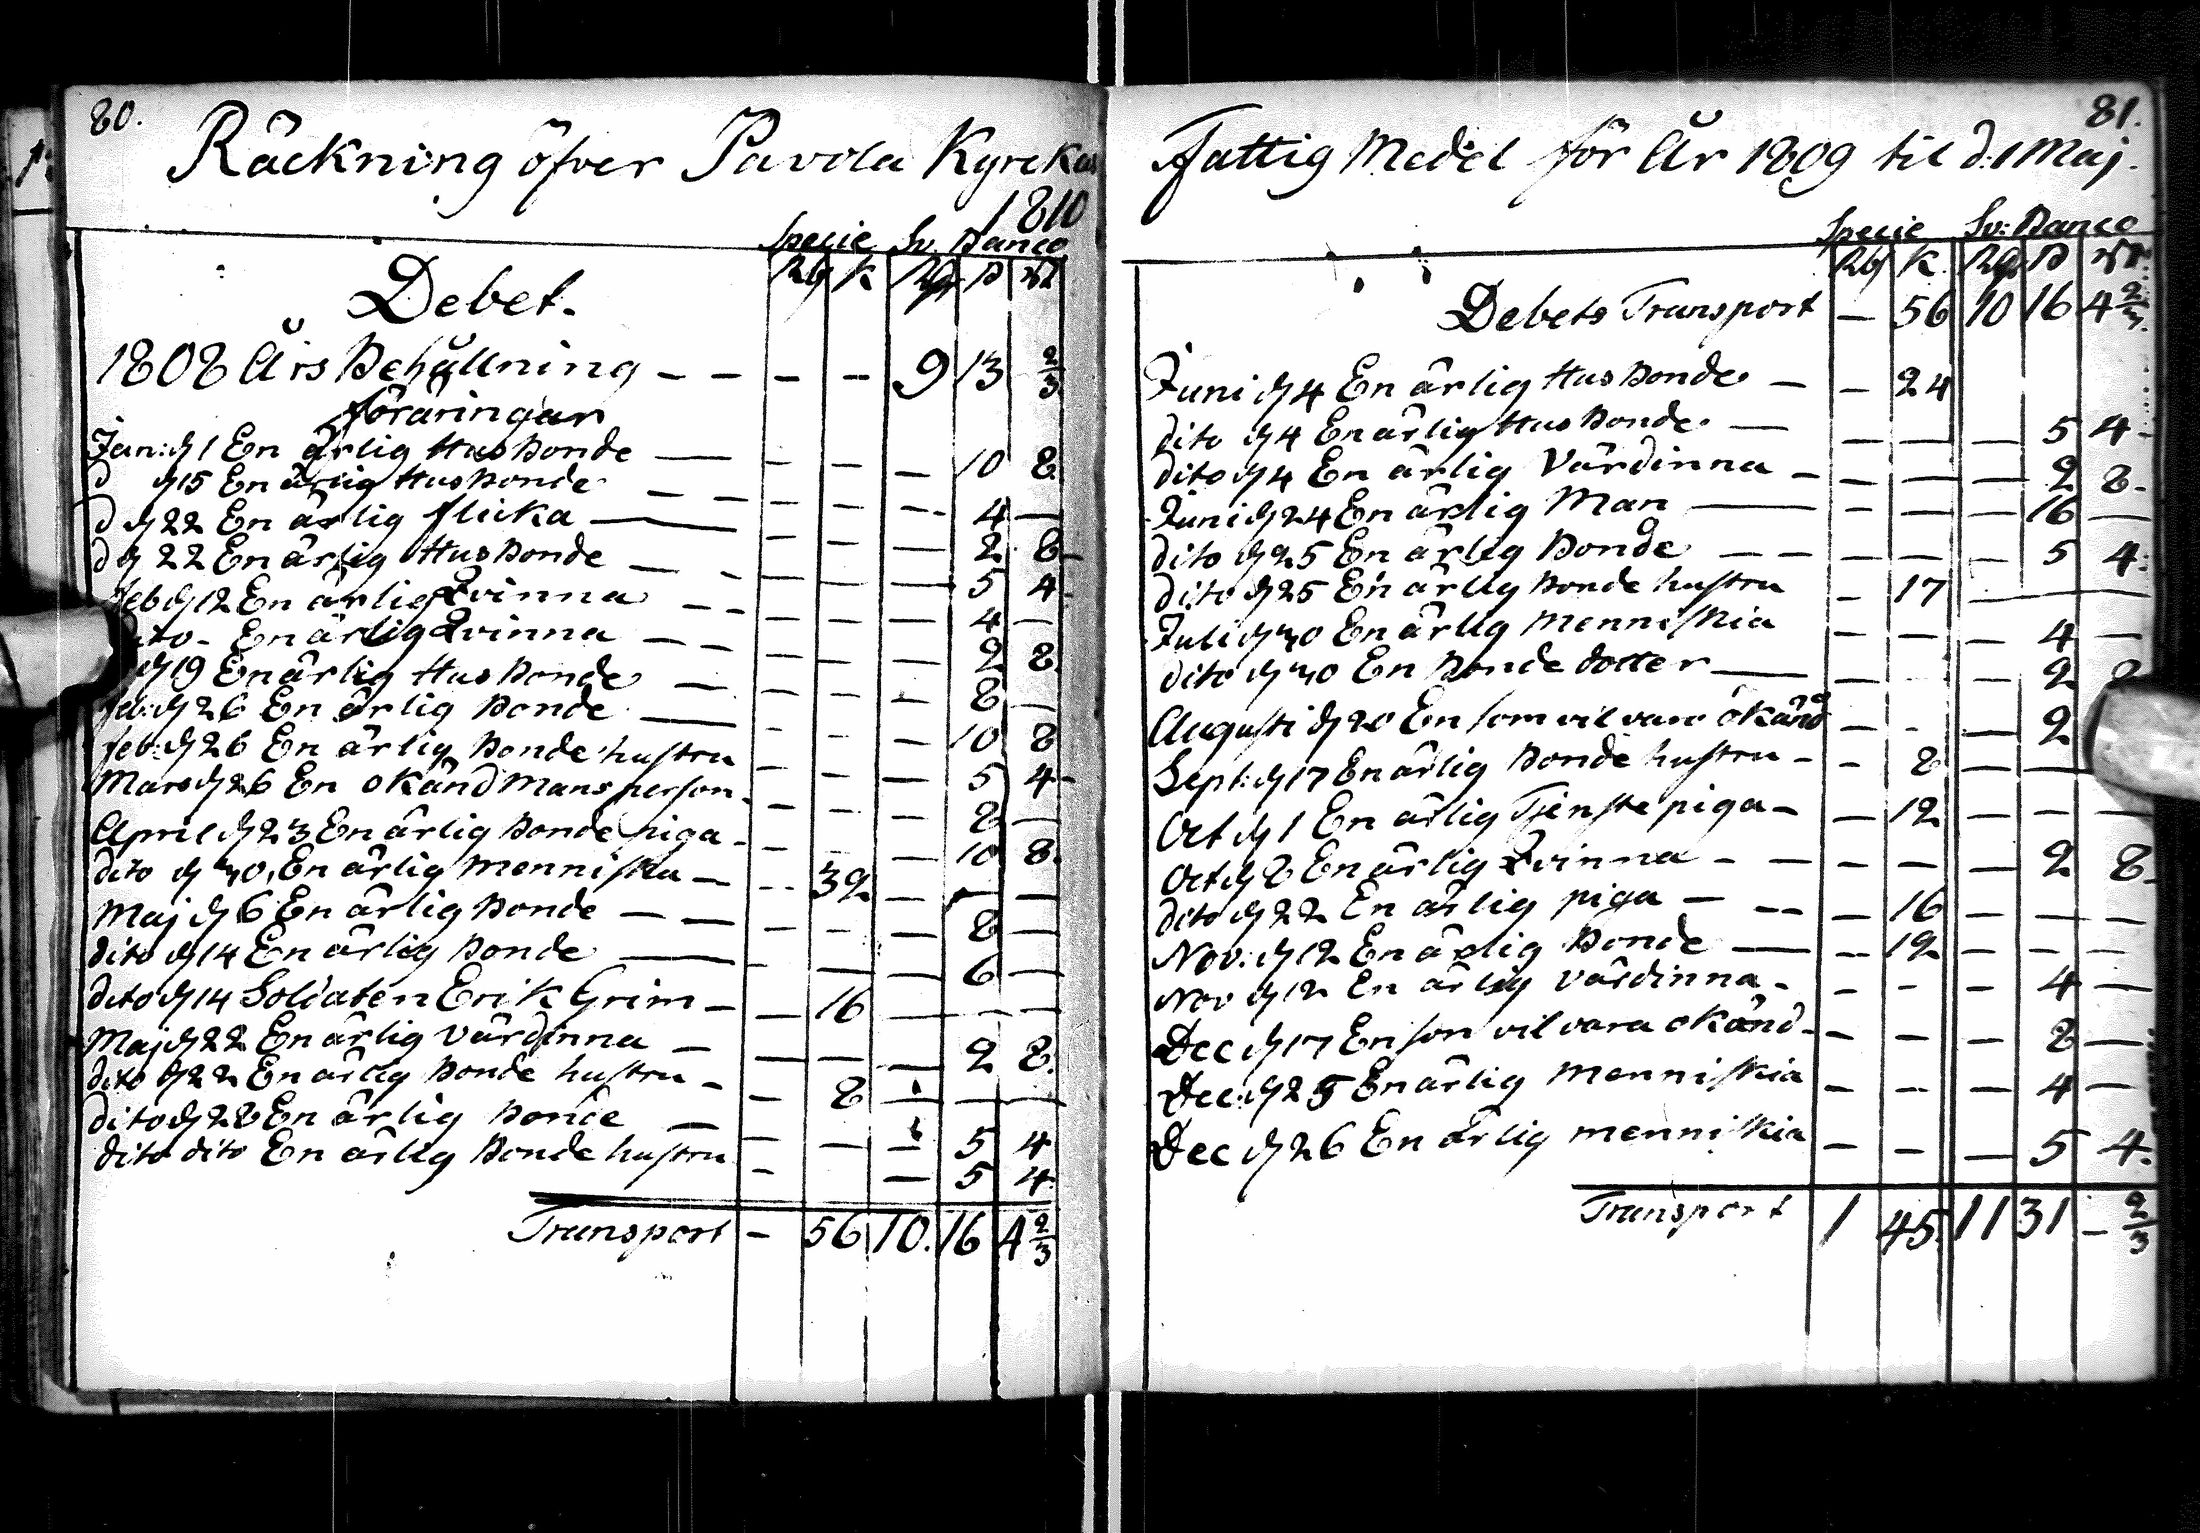 80.
Räckning öfver Pavola Kyrckas
1810
Specie Sv. Banco
Rb K Rd ß rst
Debet.
1808 Års Behållning — — — — 9 13 2/3
föräringar
Jan: d. 1 En ärlig Husbonde — - - — 10 8
d d. 15 En ärlig Husbonde — — — - -- 4 —
d d. 22 En ärlig flicka — - - — 2 8
d d. 22 En ärlig Husbonde — - — — 5 4
Feb d. 12 En ärlig Qvinna — — — — 4 —
dito - En ärlig Qvinna — — — — 2 8.
d. 19 En ärlig Husbonde — — — - 8 —
feb: d. 26 En ärlig Bonde — - - — 10 8
feb: d. 26 En ärlig Bonde hustru — — — 5 4
Mars d. 26 En okänd Mans person — — — 8 —
April d. 23 En ärlig Bonde piga - — — — 10 8.
dito d. 30, En ärlig Menniska — -- 32 — — —
Maj d. 6 En ärlig Bonde — — — — 8 —
dito d. 14 En ärlig Bonde — - — — 6 —
dito d. 14 Soldaten Erik Grim — — 16 — — —
Maj d. 22 En ärlig Värdinna — — — — 2 8.
dito d. 22 En ärlig Bonde hustru - — 8 — — —
dito d. 28 En ärlig Bonde — — — — 5 4
dito dito En ärlig Bonde hustru - — 5 4.
Transport — 56 10. 16 4 2/3
81.
Fattig Medel för År 1809 til d. 1 Maj.
Specie Sv: Banco
Rb K. Rd ß rst.
Debets Transport — 56 10 16 4 2/3.
Juni d. 4 En ärlig Husbonde — — 24
dito d. 4 En ärlig Husbonde — — — — 5 4 -
dito d. 4 En ärlig Värdinna — — — — 2 8 -
Juni d. 24 En ärlig Man — - — — 16 —
dito d. 25 En ärlig Bonde — — — — — 5 4.
dito d. 25 En ärlig Bonde hustru - 17 — —
Juli d. 30 En ärlig Menniskia — — — 4 —
dito d. 30 En Bonde dotter — - - — 2
Augusti d. 20 En som vil vara okänd — - - — 2
Sept: d. 17 En ärlig Bonde hustru - - 8 — —
Oct d. 1 En ärlig Tjenste piga — — 12 — — —
Oct d. 8 En ärlig Qvinna - — — — — 2 8.
dito d. 22 En ärlig piga — -- — 16 — — —
Nov: d. 12 En ärlig Bonde — — 12 — - —
Nov d. 12 En ärlig Värdinna - - - - — 4 —
Dec d. 17 En som vil vara okänd - — - — 8 —
Dec: d. 25 En ärlig Menniskia — - — 4 —
Dec d. 26 En ärlig menniskia — — — 5 4.
Transport 1 45. 11 31 - 2/3